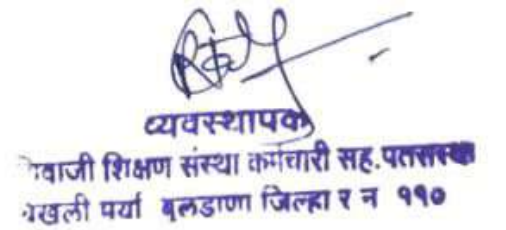 व्यवस्थापक
शिक्षण संस्था कर्मचारी सह.पतसंस्था
पर्या बुलडाणा जिल्हा र न ११०